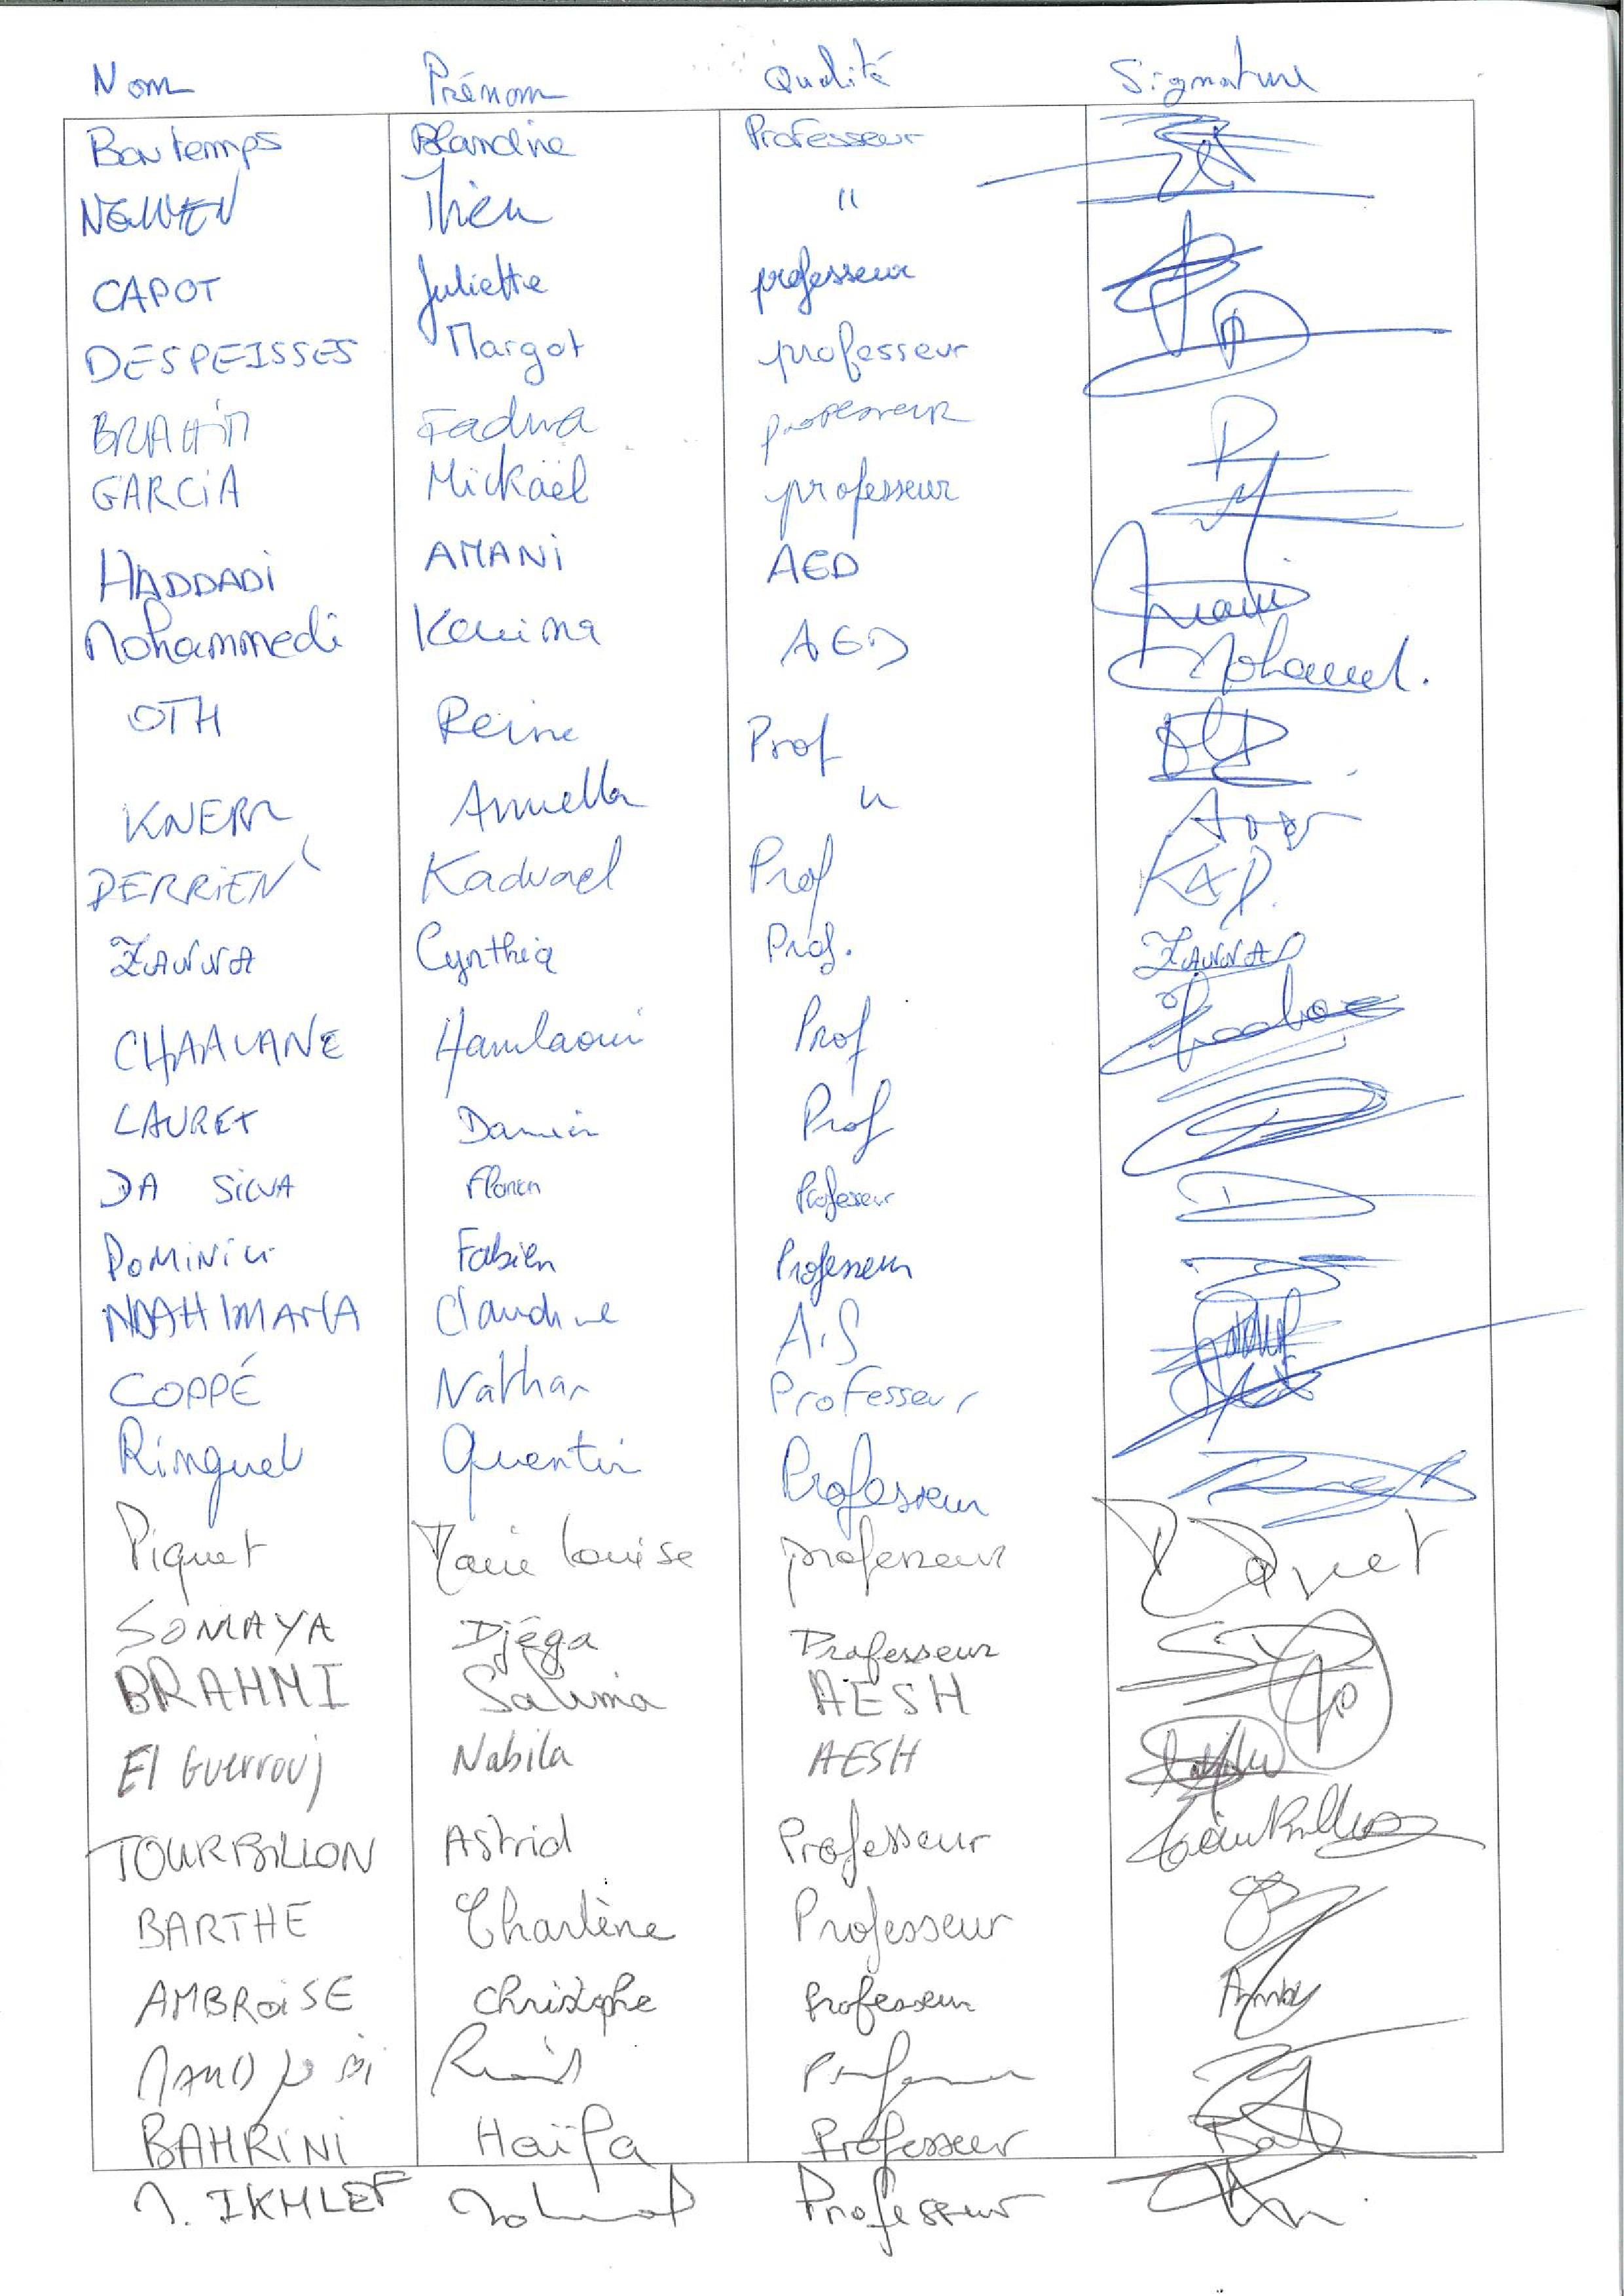 Nom Prénom Qualité Signature
Bontemps Blandine Professeur
NGUYEN Thien "
CAPOT Juliette professeur
DESPEISSES Margot professeur
BRAHIM Fadwa professeur
GARCIA Mickaël professeur
HADDADI AMANI AED
Mohammedi Karima AED Mohamed.
OTH Reine Prof
KNERR Annella "
DERRIEN Kadvael Prof KAD.
ZANNA Cynthia Prof. ZANNA
CHAALANE Hamlaoui Prof
LAURET Damien Prof
DA SILVA Professeur
DOMINICI Fabien Professeur
NDAHIMANA Claudine A.S
COPPÉ Nathan Professeur
Ringuet Quentin Professeur
Piquet Marie Louise professeur Piquet
SOMAYA Djéga Professeur
BRAHMI Salima AESH
El Guerrouj Nabila AESH
TOURBILLON Astrid Professeur
BARTHE Charlène Professeur
AMBROISE Christophe Professeur
Professeur
BAHRINI Haïfa Professeur
IKHLEF Professeur